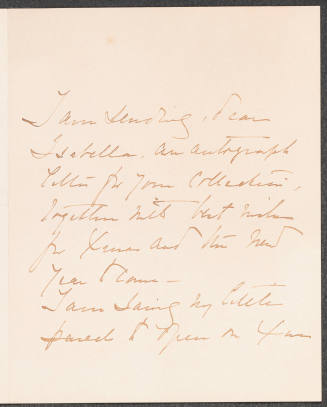 I am sending, dear
Isabella, an autograph
letter for your Collection,
together with best wishes
for Xmas and the New
Year to come —
I am saving my little
parcel to open on Xmas